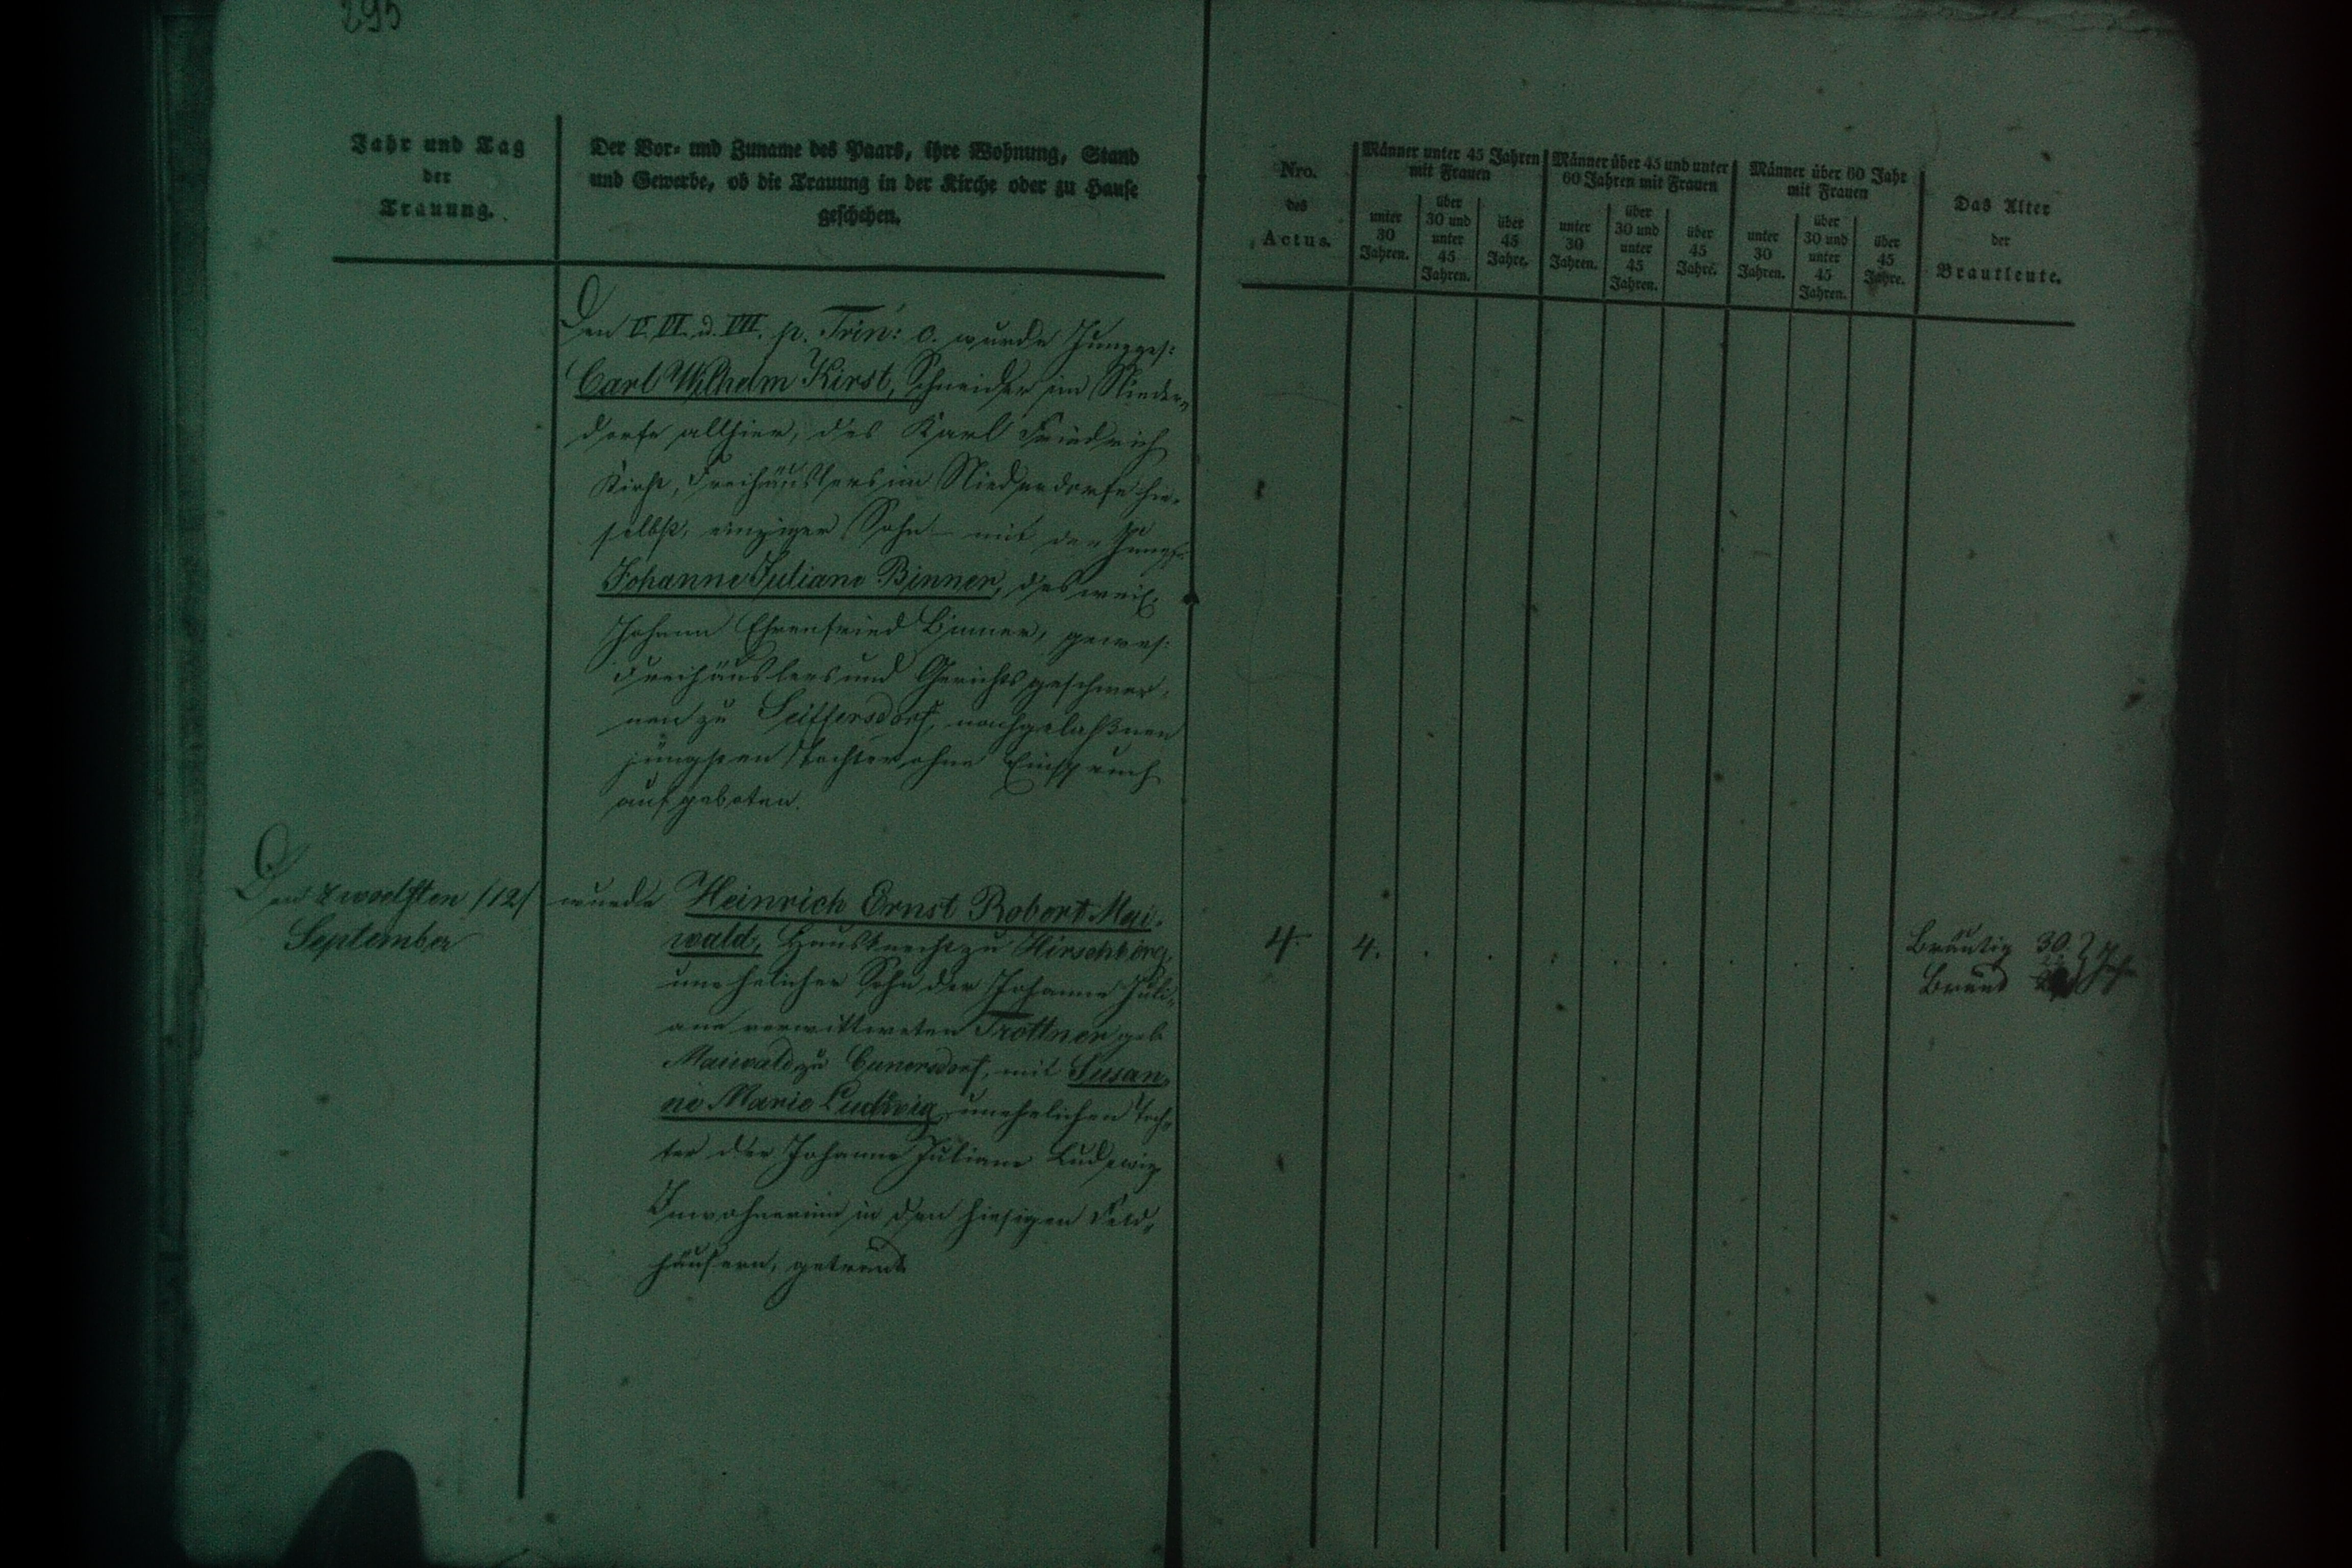 295
Jahr und Tag
der
Trauung.
Der Vor- und Zuname des Paars, ihre Wohnung, Stand
und Gewerbe, ob die Trauung in der Kirche oder zu Hause
geschehen.
Den V. VI. u. VII. p. Trin: c. wurde Junggs:
Carl Wilhelm Kirst, Schneider im Nieder-
dorfe allhier, des Karl Friedrich
Kirst, Freihäuslers im Niederdorfe hie-
selbst, einziger Sohn – mit der Jungfr:
Johanne Juliane Binner, des weil.
Johann Ehrenfried Binner, gewes:
Freihäuslers und Gerichtsgeschwor-
nen zu Seiffersdorf, nachgelaßnen
jüngsten Tochter ohne Einspruch
aufgeboten.
Den zwoelften /12/
September
wurde Heinrich Ernst Robert Mai-
wald, Hausknecht zu Hirschberg,
unehelicher Sohn der Johanne Juli-
ane verwittweten Trottner geb.
Maiwald zu Cunersdorf, mit Susan-
ne Marie Ludwig unehelichen Toch-
ter der Johanne Juliane Ludewig
Inwohnerinn in den hiesigen Feld-
häusern, getraut
Nro.
des
Actus.
Männer unter 45 Jahren
mit Frauen
unter
30
Jahren.
über
30 und
unter
45
Jahren.
über
45
Jahre.
Männer über 45 und unter
60 Jahren mit Frauen
unter
30
Jahren.
über
30 und
unter
45
Jahren.
über
45
Jahre.
Männer über 60 Jahr
mit Frauen
unter
30
Jahren.
über
30 und
unter
45
Jahren.
über
45
Jahre.
Das Alter
der
Brautleute.
4. 4. . . . . . . . .
Bräutig 30. Jahr
Braut